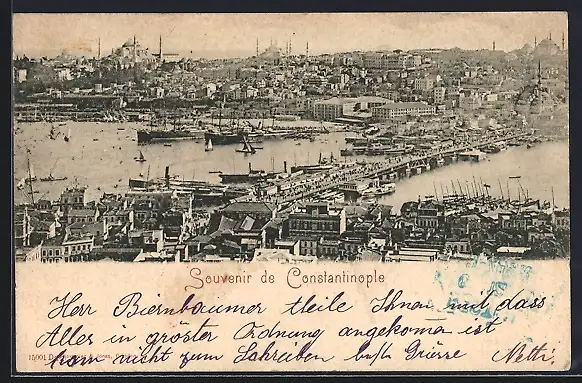 Souvenir de Constantinople
Herr Biernbaumer theile Ihnen mit dass
Alles in gröster Ordnung angekoma ist
kam nicht zum Schreiben bhft Grüsse Netti.
15001